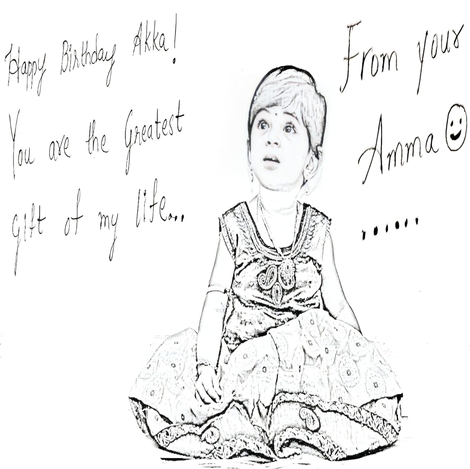 Happy Birthday Akka!
You are the Greatest
gift of my life...
From your
Amma
......